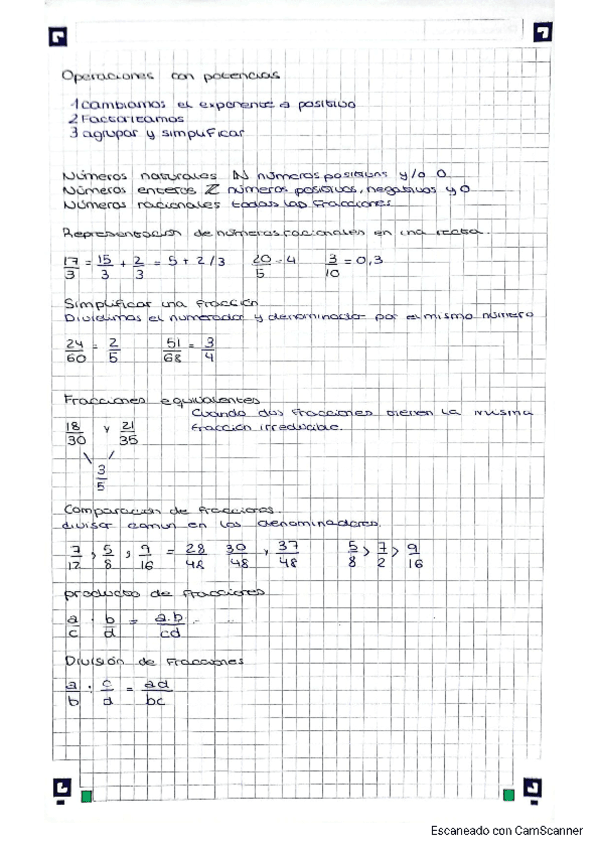 Operaciones con potencias
1 cambiamos el exponente a positivo
2 Factorizamos
3 agrupar y simplificar
Números naturales ℕ números positivos y/o 0
Números enteros ℤ números positivos, negativos y 0
Números racionales todas las fracciones
Representación de números racionales en una recta.
17/3 = 15/3 + 2/3 = 5 + 2/3 20/5 = 4 3/10 = 0,3
Simplificar una fracción
Dividimos el numerador y denominador por el mismo número
24/60 = 2/5 51/68 = 3/4
Fracciones equivalentes
Cuando dos fracciones tienen la misma
fracción irreducible.
18/30 y 21/35
3/5
Comparación de fracciones.
divisor comun en los denominadores.
7/12 , 5/8 , 9/16 = 28/48 30/48 , 37/48 5/8 > 7/2 > 9/16
producto de fracciones
a/c · b/d = a.b/cd
División de fracciones
a/b : c/d = ad/bc
Escaneado con CamScanner